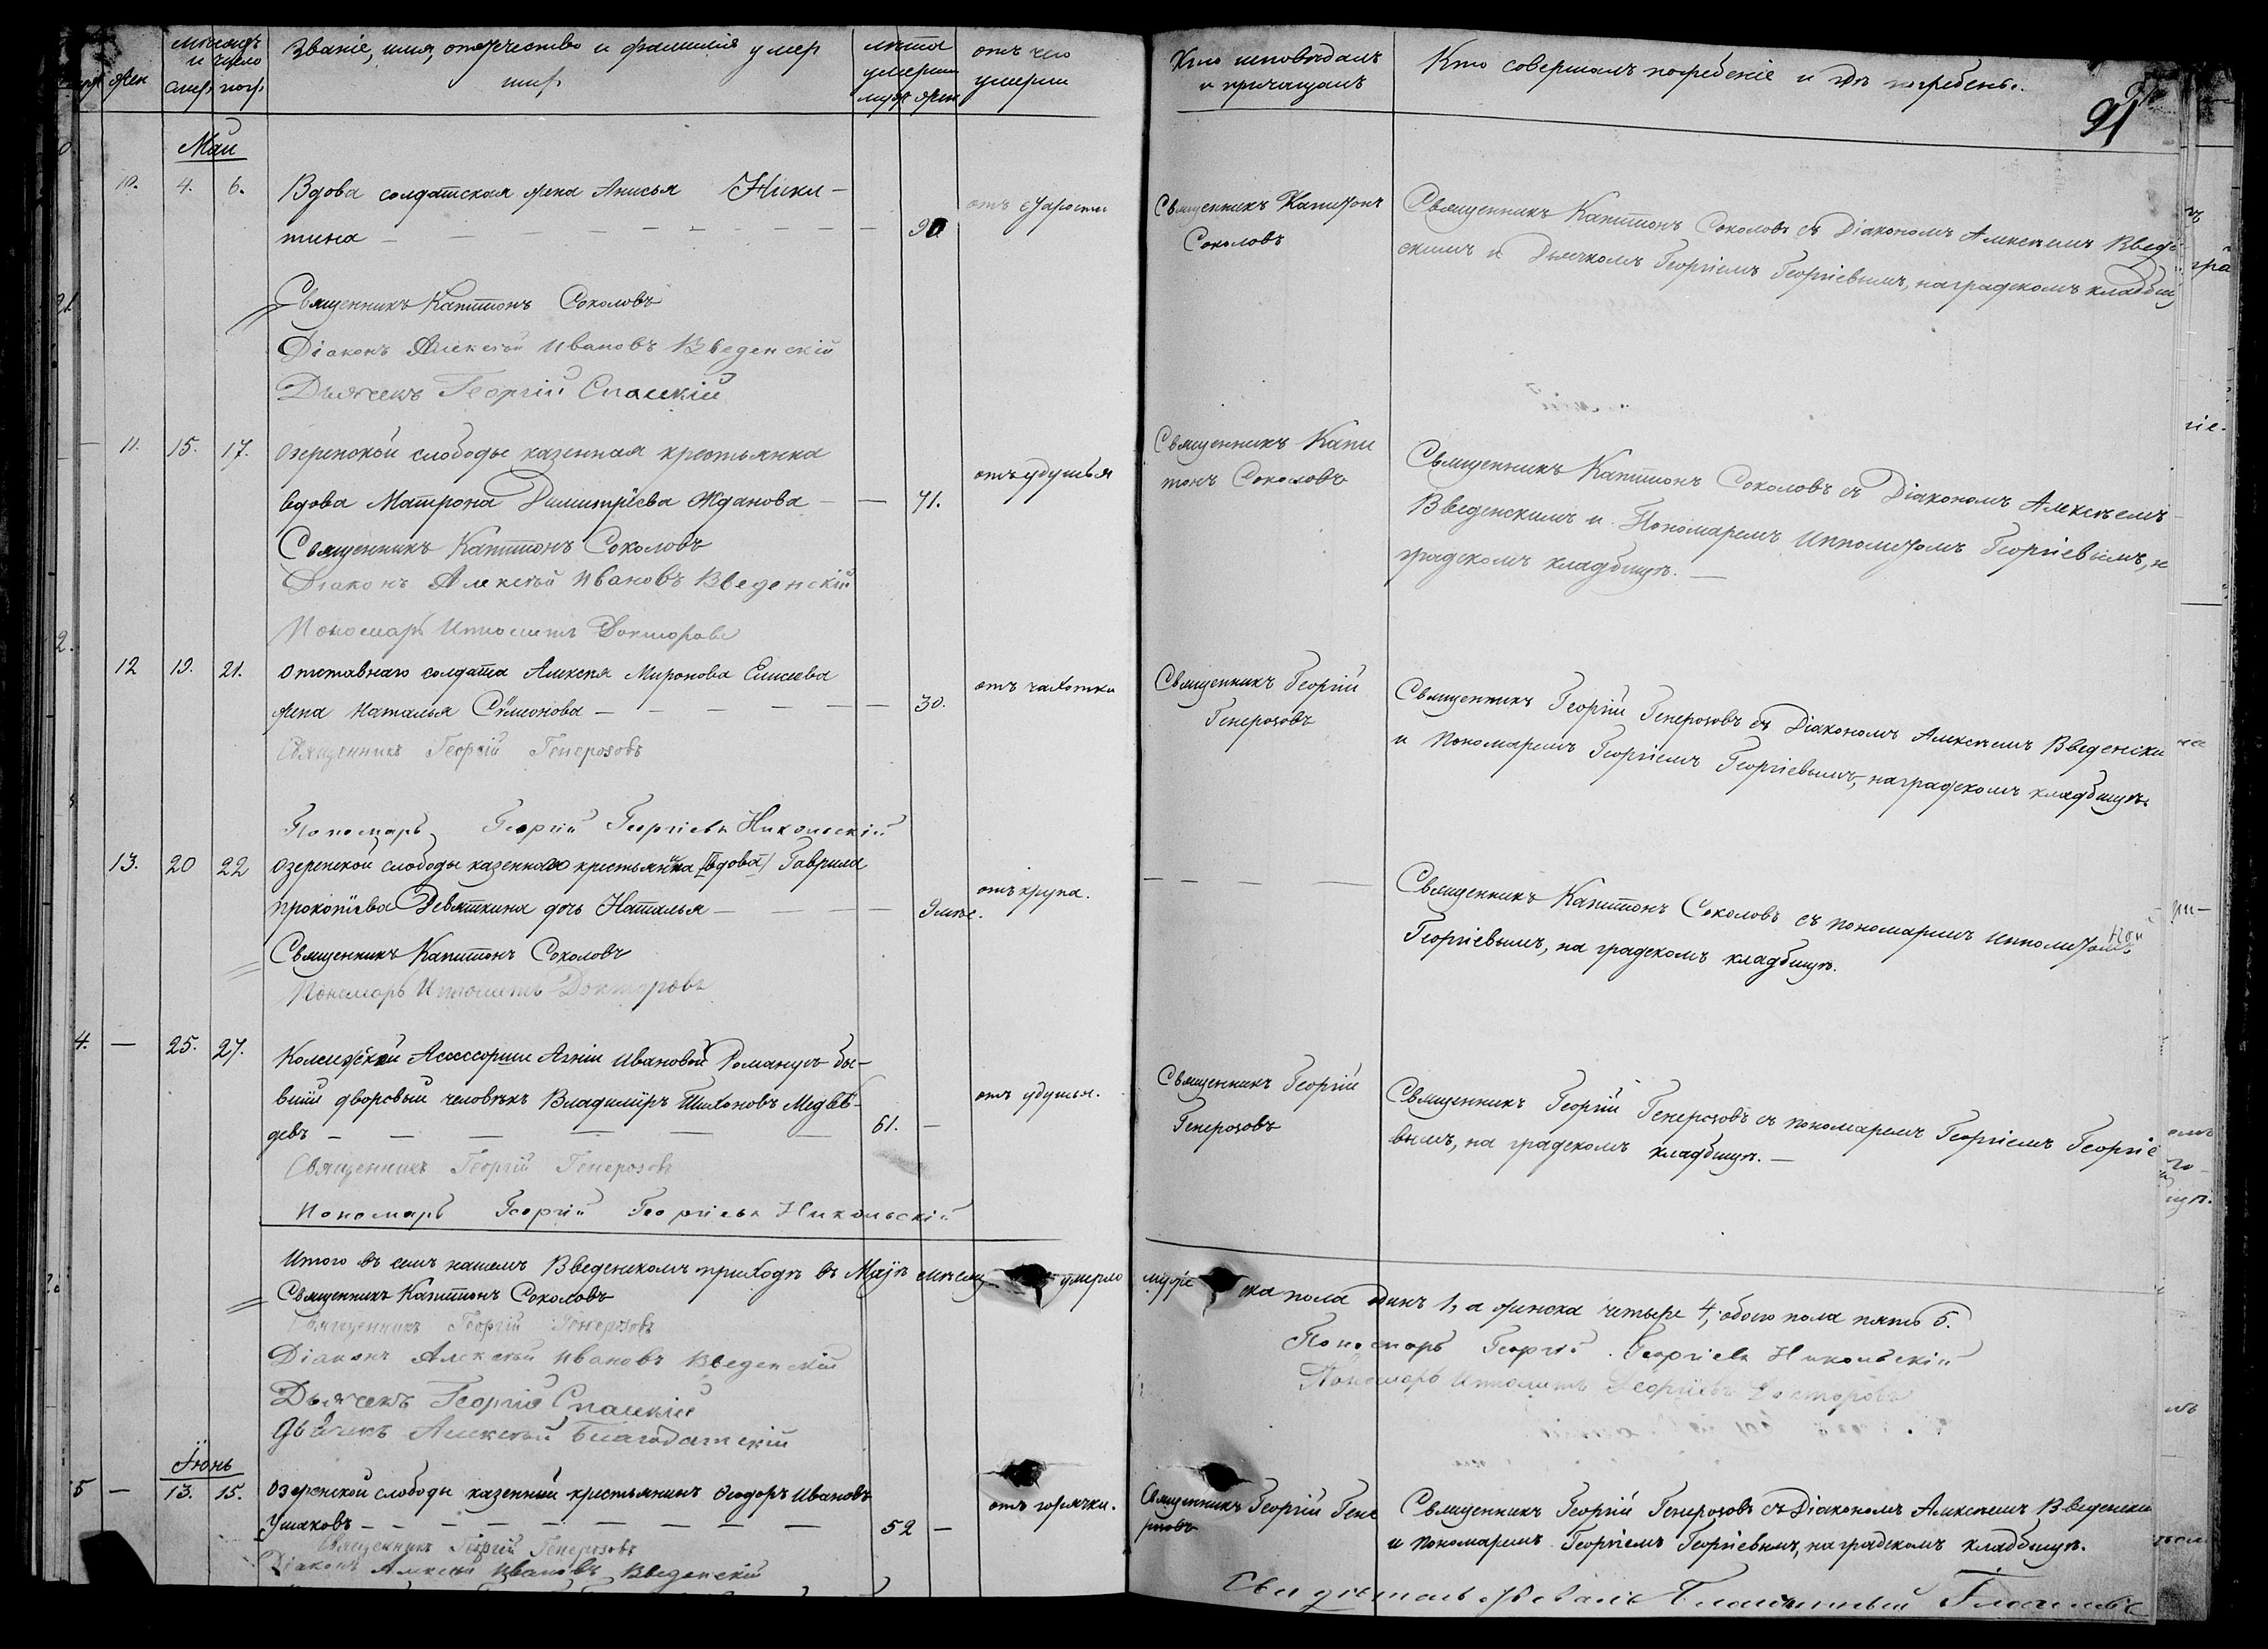 мѣсяцъ и число
жен
смер. погр.
Званіе, имя, отечество и фамилія умер
ших.
лѣта умерш.
муж жен
отъ чего
умерли
Кто исповѣдалъ
и причащалъ
Кто совершалъ погребеніе и гдѣ погребены.
91
Маи
10. 4. 6. Вдова солдатская жена Анисья Ники-
тина 90 отъ старости
Священникъ Капитонъ
Соколовъ
Священникъ Капитонъ Соколовъ съ Діакономъ Алексѣемъ Введе
скимъ и Дьячкомъ Георгіемъ Георгіевымъ, на градскомъ кладбищ
Священникъ Капитонъ Соколовъ
Діаконъ Алексѣй Ивановъ Введенскій
Дьячекъ Георгій Спасскій
11. 15. 17. Озеренской слободы казенная крестьянка
вдова Матрона Димитріева Жданова 71. отъ удушья
Священникъ Капи
тонъ Соколовъ
Священникъ Капитонъ Соколовъ съ Діакономъ Алексѣемъ
Введенскимъ и Пономаремъ Ипполитомъ Георгіевымъ, н
градскомъ кладбищѣ.
Священникъ Капитонъ Соколовъ
Діаконъ Алексѣй Ивановъ Введенскій
Пономарь Ипполитъ Докторовъ
12 19. 21. Отставнаго солдата Алексѣя Миронова Елисеева
жена Наталья Сѵмеонова 30. отъ чахотки
Священникъ Георгій
Генерозовъ
Священникъ Георгій Генерозовъ съ Діакономъ Алексѣемъ Введенски
и Пономаремъ Георгіемъ Георгіевымъ, на градскомъ кладбищѣ.
Священникъ Георгій Генерозовъ
Пономарь Георгій Георгіевъ Никольскій
13. 20 22 Озеренской слободы казеннаго крестьянина (вдова) Гаврила
Прокопіева Девяткина дочь Наталья 9 мѣс. отъ крупа.
Священникъ Капитонъ Соколовъ съ пономаремъ Ипполитомъ
Георгіевымъ, на градскомъ кладбищѣ.
Священникъ Капитонъ Соколовъ
Пономарь Ипполитъ Докторовъ
4. — 25. 27. Колежской Асессорши Агніи Ивановой бы-
вшій дворовый человѣкъ Владиміръ Тихоновъ Медвѣ-
девъ 61. — отъ удушья.
Священникъ Георгій
Генерозовъ
Священникъ Георгій Генерозовъ съ пономаремъ Георгіемъ Георгіе
вымъ, на градскомъ кладбищѣ. —
Священникъ Георгій Генерозовъ
Пономарь Георгій Георгіевъ Никольскій
Итого въ семъ нашемъ Введенскомъ приходѣ въ Маіѣ мѣсяц умерло муже ска пола одинъ 1, а женска четыре 4; обоего пола пять 5.
Священникъ Капитонъ Соколовъ
Священникъ Георгій Генерозовъ
Діаконъ Алексѣй Ивановъ Введенскій
Дьячекъ Георгій Спасскій
Дьячекъ Алексѣй Благодатскій
Пономарь Георгій Георгіевъ Никольскій
Пономарь Ипполитъ Георгіевъ Докторовъ
Іюнь
5 — 13. 15. Озеренской слободы казенный крестьянинъ Ѳеодоръ Ивановъ
Ушаковъ 52 — отъ горячки.
Священникъ Георгій Гене
розовъ
Священникъ Георгій Генерозовъ съ Діакономъ Алексѣемъ Введенски
и пономаремъ Георгіемъ Георгіевымъ, на градскомъ кладбищѣ.
Священникъ Георгій Генерозовъ
Діаконъ Алексѣй Ивановъ Введенскій